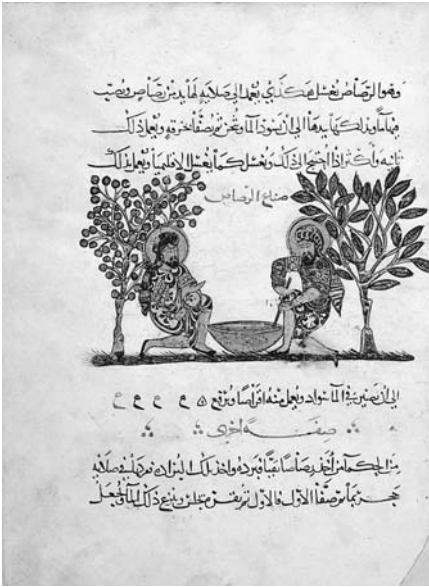 وهو الرصاص يغسل هكذى يعمد الى صلايه لها يد من رصاص ويصب
فيها ما ويدلكها بيدها الى ان يسود الما ويثخن ثم يصفا بخرقه ويعمد ذلك
ثانيه واكثر اذا احتيج الى ذلك ويغسل كما يغسل الاقليميا ويعمل ذلك
صناع الرصاص
الى ان في الما سواد ويعمل منه اقراصا ويرفع
صفة اخرى
من الحكما من اخذ رصاصا نقيا فبرده واخذ تلك البراده في صلايه
حجر بما ثم صفا الاول فالاول ثم حتى وينزع ذلك الما ويجعل